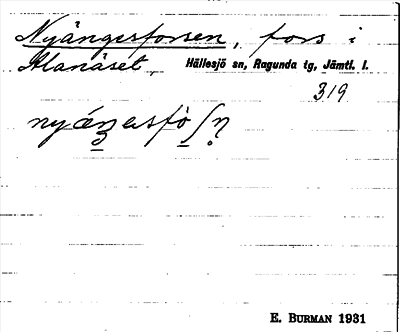 Nyångesforsen, fors i
Alanäset, Hällesjö sn, Ragunda tg, Jämtl. l.
319
E. BURMAN 1931